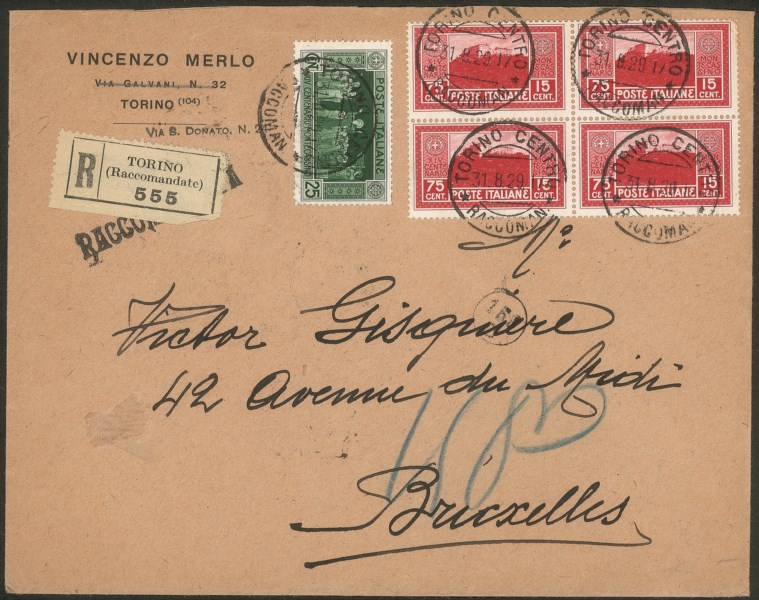 VINCENZO MERLO
VIA GALVANI, N. 32
TORINO (104)
VIA S. DONATO, N.
R
TORINO
(Raccomandate)
555
POSTE ITALIANE
25
TORINO CENTRO
31.8.29 17
RACCOMAN
75 CENT. POSTE ITALIANE 15 CENT.
TORINO CENTRO
31.8.29 17
RACCOMAN
75 CENT. POSTE ITALIANE 15 CENT.
TORINO CENTR
31.8.29
RACCOMAN
XIV CENTENARIO
75 CENT. POSTE ITALIANE 15 CENT.
TORINO CENT
31.8.29
RACCOMAN
75 CENT. POSTE ITALIANE 15 CENT.
Mr.
Victor Gisquiere
42 Avenue du Midi
Bruxelles